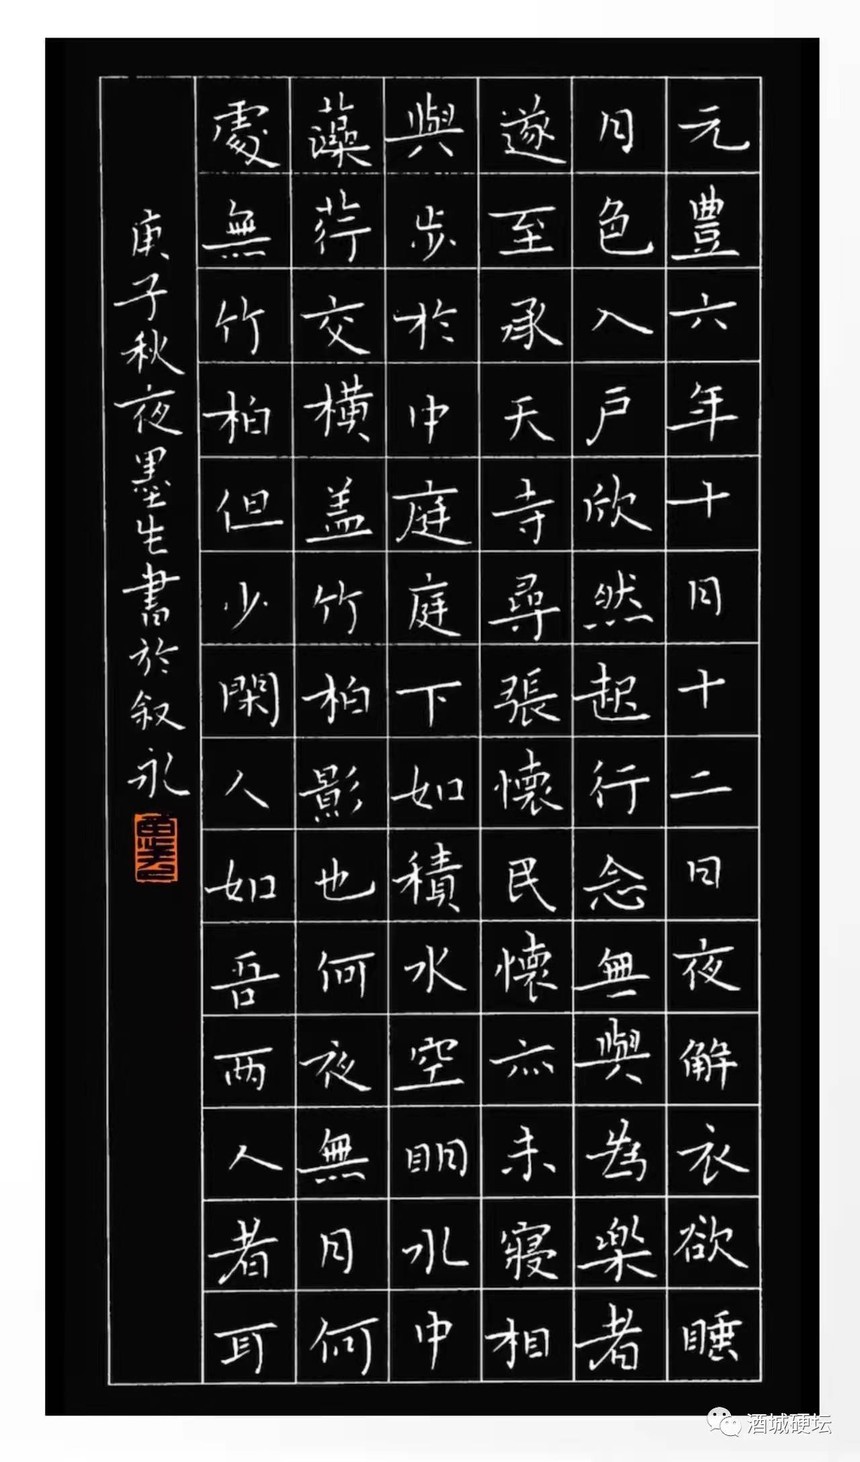 元豐六年十月十二日夜解衣欲睡
月色入戶欣然起行念無與為樂者
遂至承天寺尋張懷民懷亦未寢相
與步於中庭庭下如積水空明水中
藻荇交橫蓋竹柏影也何夜無月何
處無竹柏但少閑人如吾兩人者耳
庚子秋夜墨生書於叙永
酒城硬坛